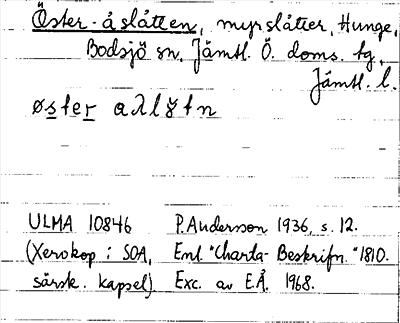 Öster-åslåtten, myrslåtter, Hunge,
Bodsjö sn. Jämtl. Ö. doms. tg,
Jämtl. l.
øster
ULMA 10846 P. Andersson 1936, s. 12.
(Xerokop i SOA, Enl. "Charta-Beskrifn." 1810.
särsk. kapsel) Exc. av E.Å. 1968.